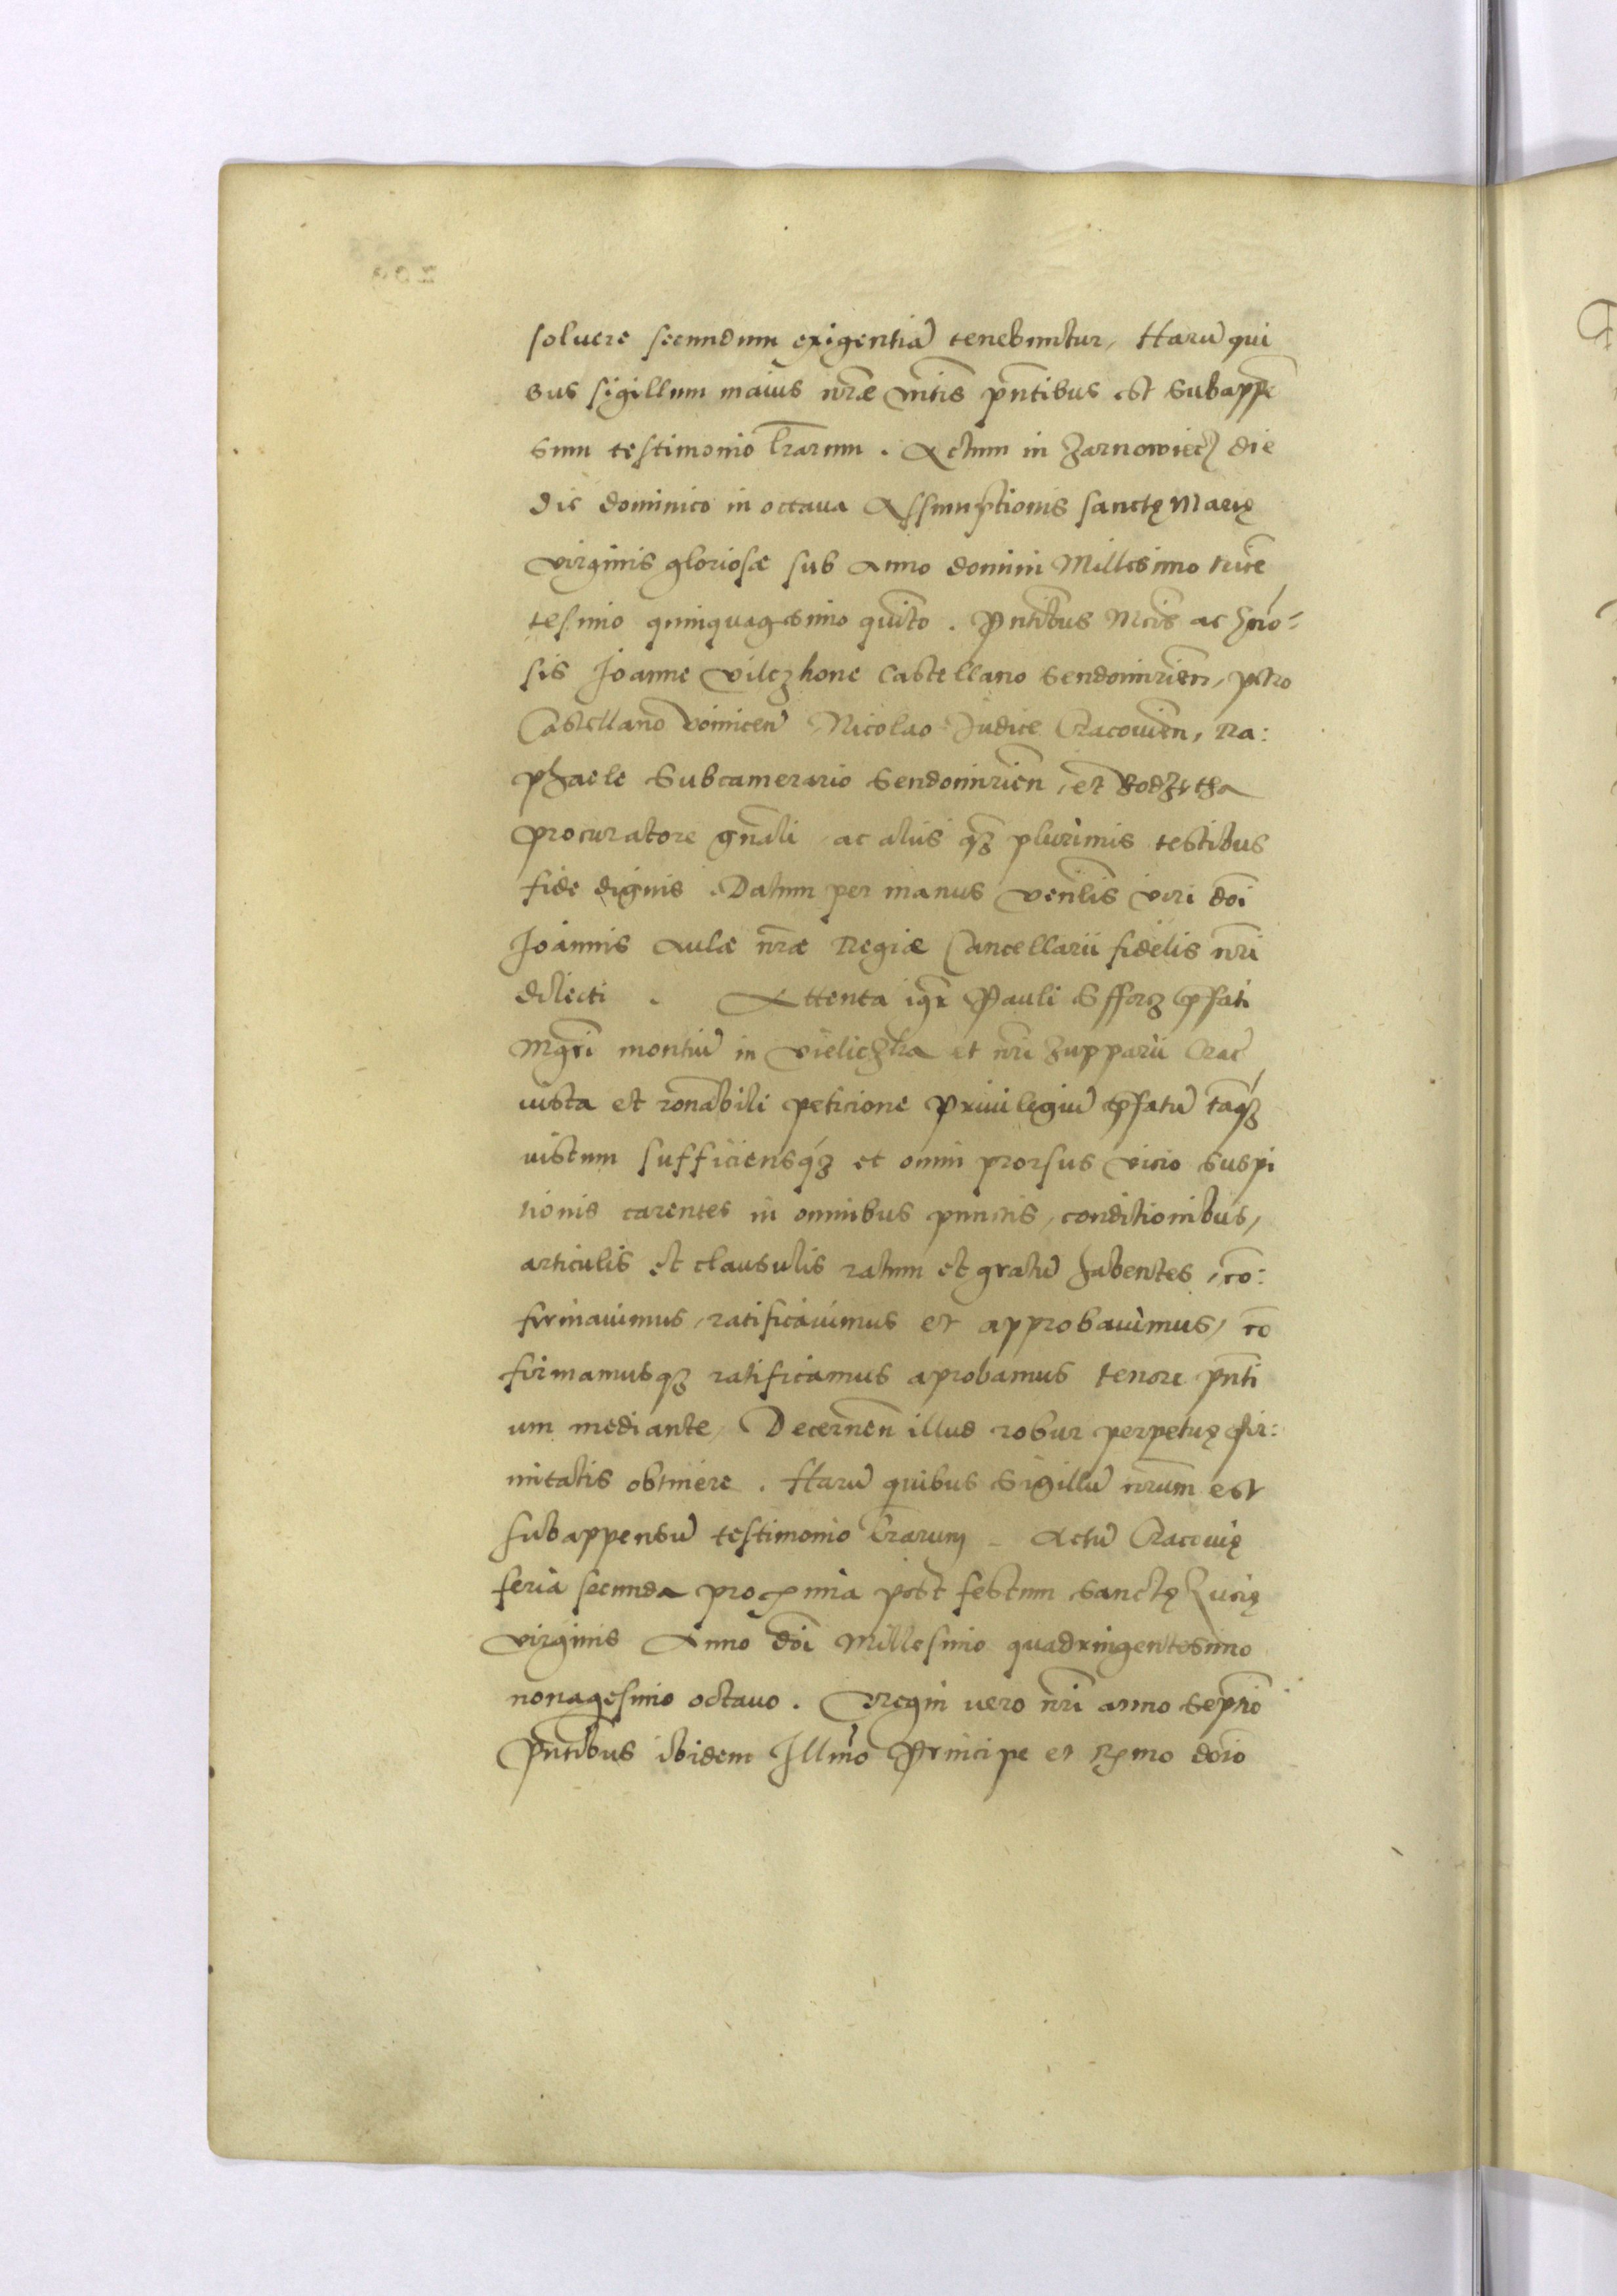 soluere secundum exigentiā tenebuntur, Harū qui
bus sigillum maius nr̄æ m̄tis pn̄tibus est subappē
sum testimonio lr̄arum. Actum in Zarnowiecz die
die dominico in octaua Assumptionis sanctę Marię
virginis gloriosæ sub Anno domini Millesimo trice
tesimo quinquagesimo quīto. Pn̄tibus Mcīs ac gn̄o:
sis Joanne Vilczkone Castellano Sendomiriēn, petro
Castellano voiniceñ Nicolao Judice Cracouiēn, Ra:
phaele Subcamerario Sendomiriēn, et Bodzętha
procuratore gn̄ali, ac aliis qz plurimis testibus
fide dignis. Datum per manus Ven̄lis viri doī
Joannis Aulæ nr̄æ Regiæ Cancellarii fidelis nr̄i
dilecti. Attenta igr̄ Pauli Sfforz pfati
Mgr̄i montiū in vieliczka et nr̄i Zupparii Crac̄
iusta et ronābili peticione priuilegiū pfatū tāqz
iustum sufficiensqz et omni prorsus vicio suspi
tionis carentes in omnibus punctis, conditionibus,
articulis et clausulis ratum et gratū habentes, cō:
firmauimus, ratificauimus et approbauimus, cō
firmamusqz ratificamus aprobamus tenore pn̄ti
um mediante, Decernēn illud robur perpetuę fir:
mitatis obtinere. Harū quibus Sigillū nr̄um est
subappensū testimonio lr̄arum _ Actū Cracouię
feria secunda proxima post festum Sanctę Lucię
virginis Anno doī Millesimo quadringentesimo
nonagesimo octauo. Regni vero nr̄i anno septīo
Pn̄tibus ibidem Illm̄o Principe et Rx̄mo doīo